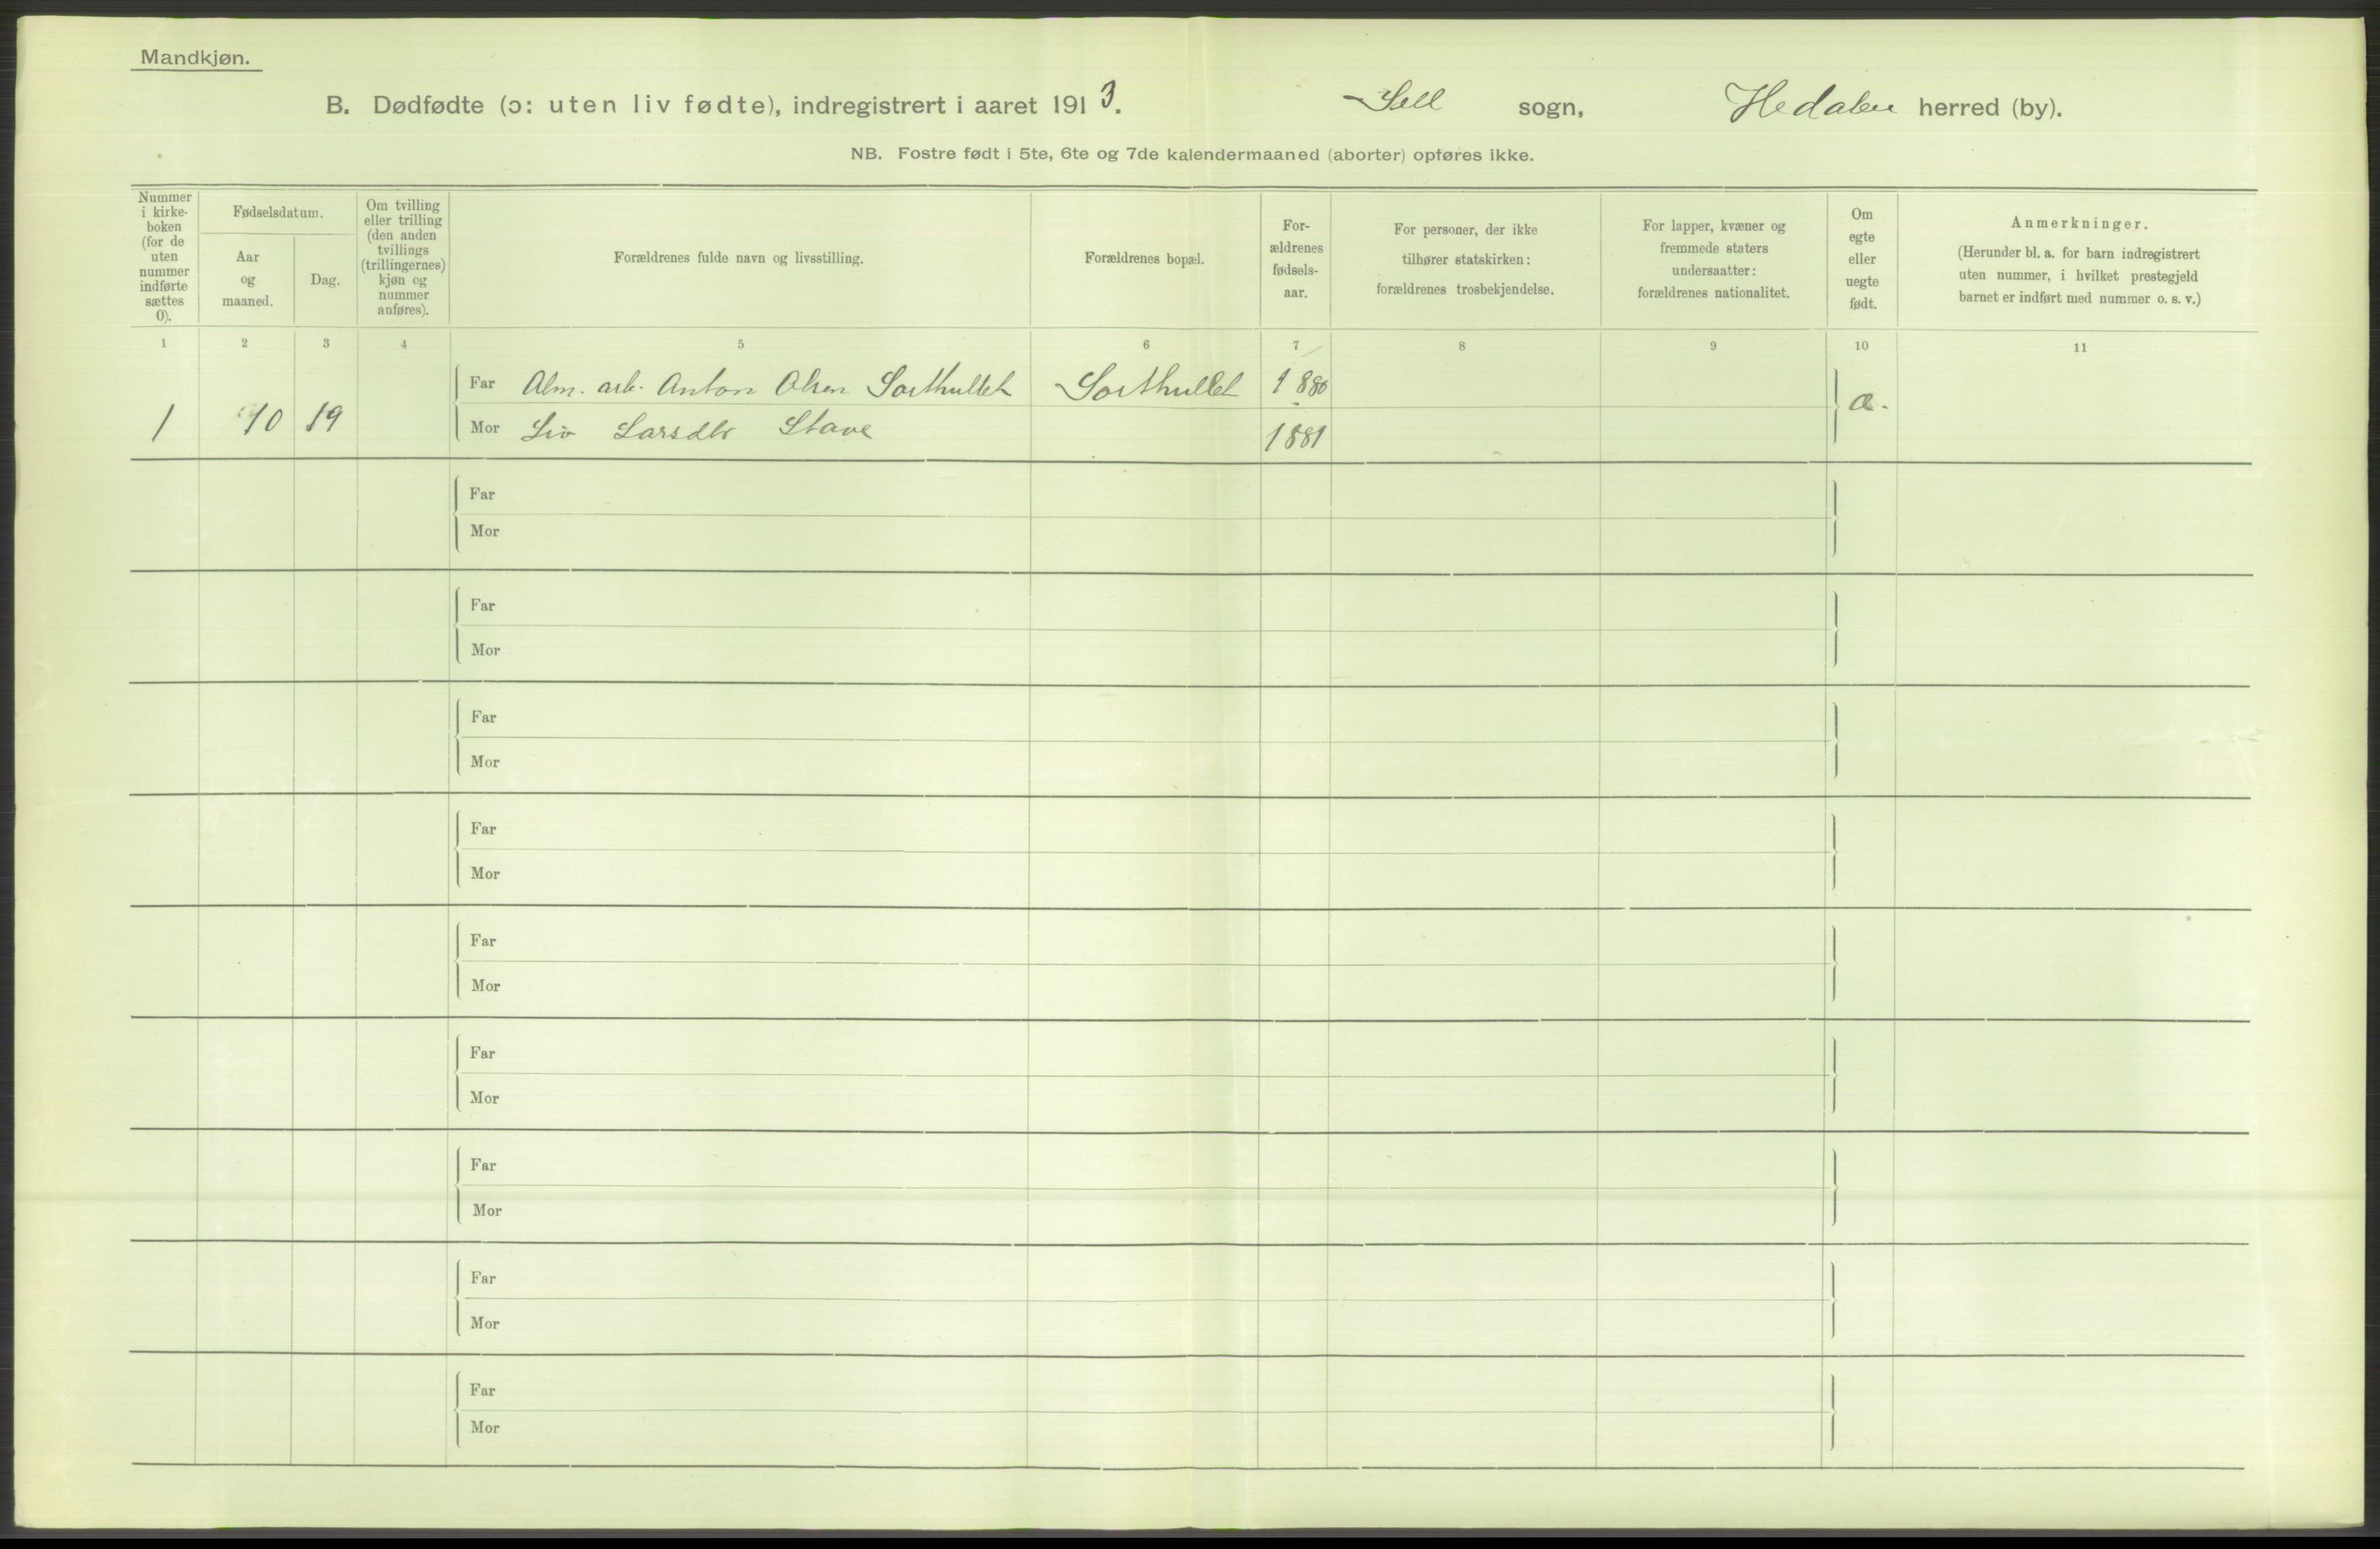 Mandkjøn.
B. Dødfødte (ɔ: uten liv fødte), indregistrert i aaret 1913. Sell sogn, Hedalen herred (by).
NB. Fostre født i 5te, 6te og 7de kalendermaaned (aborter) opføres ikke.
Nummer i kirke-boken (for de uten nummer indførte sættes 0).
Fødselsdatum.
Aar og maaned.
Dag.
Om tvilling eller trilling (den anden tvillings (trillingernes) kjøn og nummer anføres).
Forældrenes fulde navn og livsstilling.
Forældrenes bopæl.
For-ældrenes fødsels-aar.
For personer, der ikke tilhører statskirken: forældrenes trosbekjendelse.
For lapper, kvæner og fremmede staters undersaatter: forældrenes nationalitet.
Om egte eller uegte født.
Anmerkninger.
(Herunder bl. a. for barn indregistrert uten nummer, i hvilket prestegjeld barnet er indført med nummer o. s. v.)
1 2 3 4 5 6 7 8 9 10 11
Far Alm. arb. Anton Olsen Sorthullet Sorthullet 1880
1 10 19 Mor Liv Larsdtr Stave 1881 æ.
Far
Mor
Far
Mor
Far
Mor
Far
Mor
Far
Mor
Far
Mor
Far
Mor
Far
Mor
Far
Mor